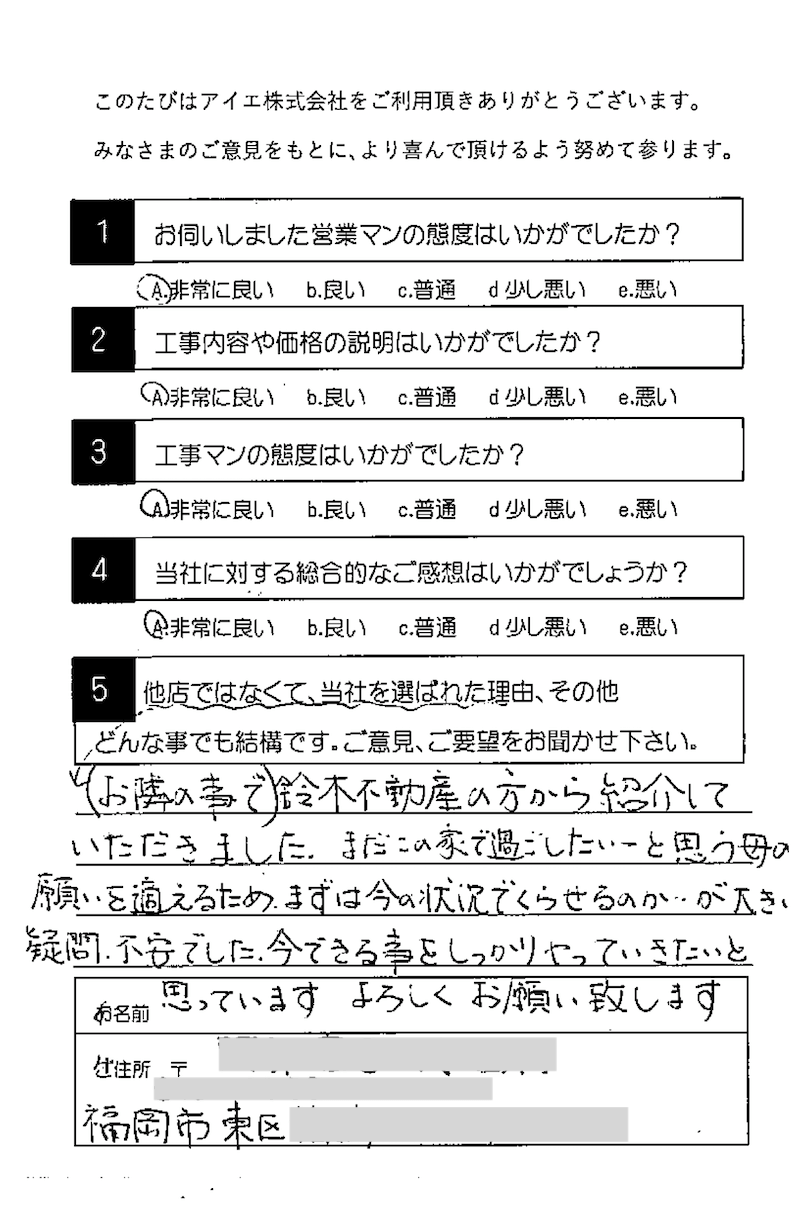 このたびはアイエ株式会社をご利用頂きありがとうございます。
みなさまのご意見をもとに、より喜んで頂けるよう努めて参ります。
1 お伺いしました営業マンの態度はいかがでしたか？
A.非常に良い b.良い c.普通 d少し悪い e.悪い
2 工事内容や価格の説明はいかがでしたか？
A.非常に良い b.良い c.普通 d少し悪い e.悪い
3 工事マンの態度はいかがでしたか？
A.非常に良い b.良い c.普通 d少し悪い e.悪い
4 当社に対する総合的なご感想はいかがでしょうか？
A.非常に良い b.良い c.普通 d少し悪い e.悪い
5 他店ではなくて、当社を選ばれた理由、その他
どんな事でも結構です。ご意見、ご要望をお聞かせ下さい。
(お隣の事で)鈴木不動産の方から紹介して
いただきました. まだこの家で過ごしたいーと思う母の
願いを適えるため.まずは今の状況でくらせるのか‥が大きい
疑問.不安でした.今できる事をしっかりやっていきたいと
思っています よろしく お願い致します
お名前
ご住所 〒
福岡市東区